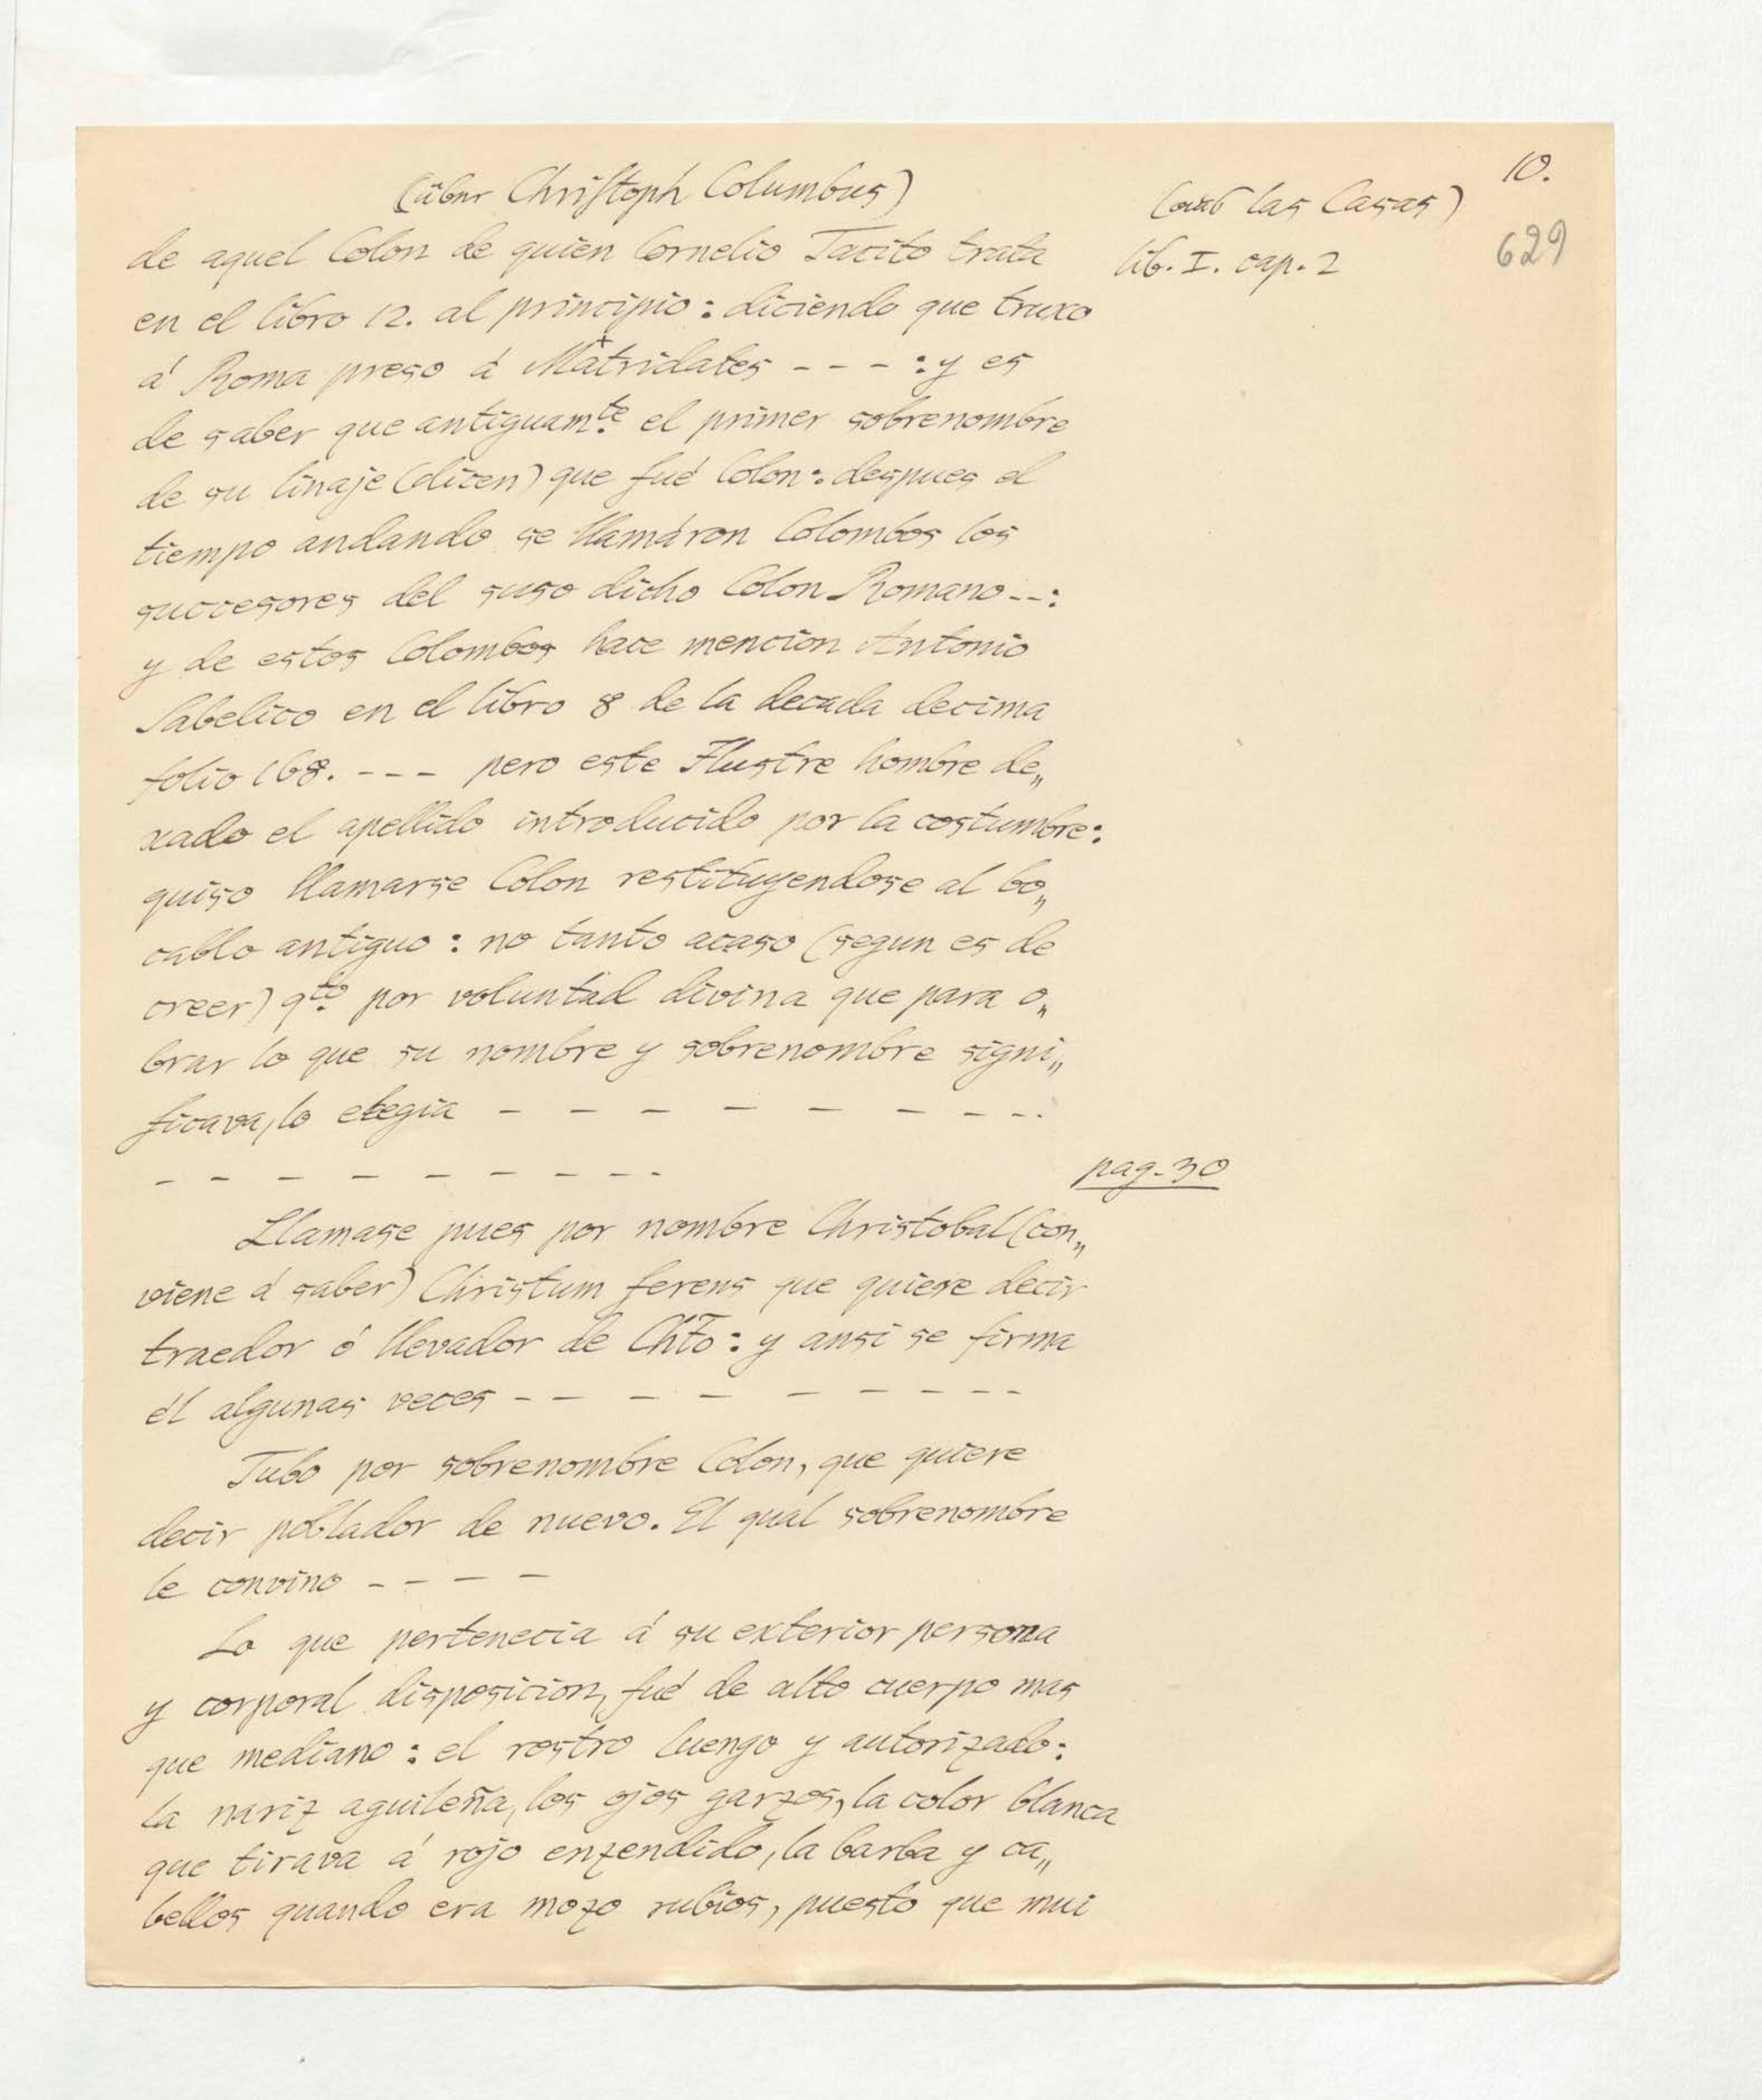 10.
(über Christoph Columbus)
(aus las Casas)
629
de aquel Colon de quien Cornelio Tacito trata
lib. I. cap. 2
en el libro 12. al principio: diciendo que truxo
á Roma preso á Matridates - - - : y es
de saber que antiguam.te el primer sobrenombre
de su linaje (dicen) que fué Colon: despues el
tiempo andando se llamáron Colombos los
successores del suso dicho Colon Romano --:
y de estos Colombos hace mencion Antonio
Sabelico en el libro 8 de la decada decima
folio 168. - - - pero este Ilustre hombre de„
xado el apellido introducido por la costumbre:
quiso llamarse Colon restituyendose al bo„
cablo antiguo: no tanto acaso (segun es de
creer) q.to por voluntad divina que para o„
brar lo que su nombre y sobrenombre signi„
ficava, lo elegia - - - - - - - - -.
- - - - - - - - - -
pag. 30
Llamase pues por nombre Christobal (con„
viene á saber) Christum ferens que quiere decir
traedor ó llevador de Chto: y ansi se firma
él algunas veces - - - - - - - - -
Tubo por sobrenombre Colon, que quiere
decir poblador de nuevo. El qual sobrenombre
le convino - - - -
Lo que pertenecia á su exterior persona
y corporal disposicion, fué de alto cuerpo mas
que mediano: el rostro luengo y autorizado:
la nariz aguileña, los ojos garzos, la color blanca
que tirava á rojo enzendido, la barba y ca„
bellos quando era mozo rubios, puesto que mui